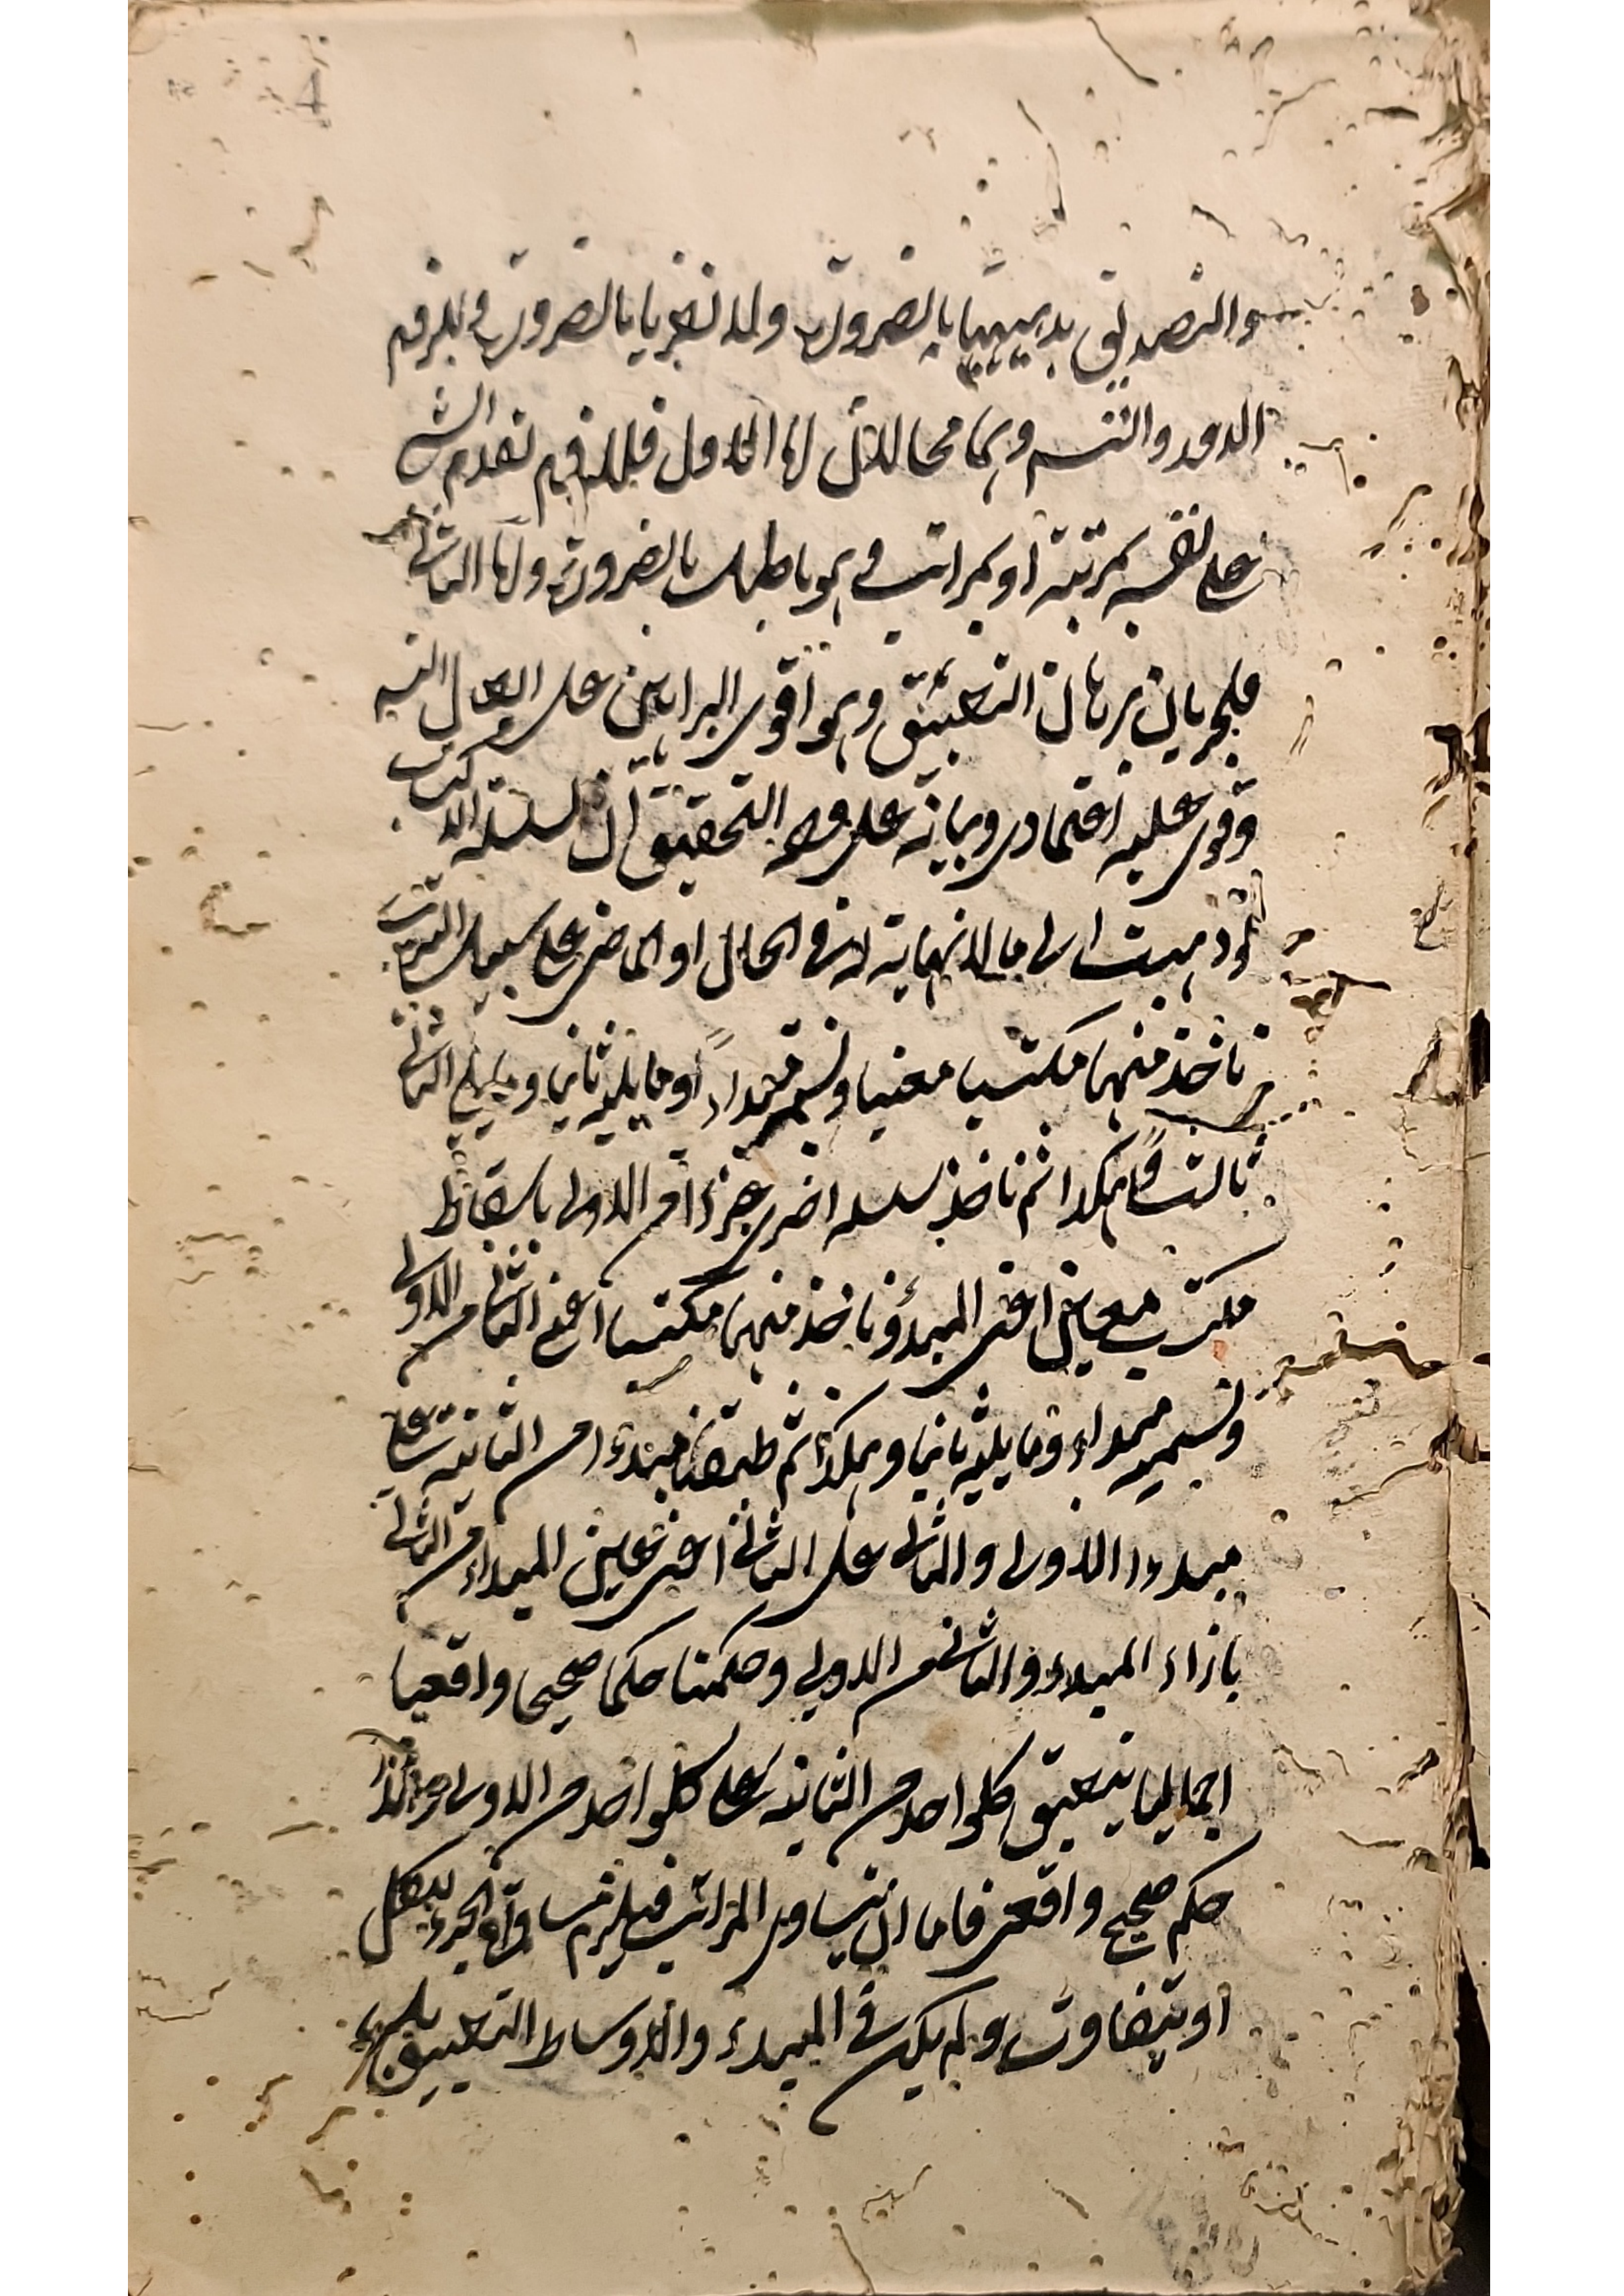 والتصديق بديهيا بالضرورة ولا نظريا بالضرورة ويلزم
الدور والتسـ وهما محالان اما الاول فللزوم تقدم الشـ
على نفسه بمرتبة او بمراتب وهو باطل بالضرورة واما الثانى
فلجريان برهان التطبيق وهو اقوى البراهين على ابطال التسـ
وقوى عليه اعتمادى وبيانه على وجه التحقيق ان سلسلة الاكتساب
لو ذهبت الى ما لا نهاية له فى الحال او الماضى على سبيل الترتب
ناخذ منها مكتسبا معينا ونسميه مبداءً وما يليه ثانيا وما يلى الثانى
ثالثا وهكذا ثم ناخذ سلسلة اخرى جزءا من الاولى باسقاط
مكتسب معين اعنى المبدؤ وناخذ منها مكتسبا اعنى الثانى من الاولى
ونسميه مبداء وما يليه ثانيا وهكذا ثم طبقنا مبدءا من الثانية على
مبدءا الاولى والثانى على الثانى اعنى عين المبداء من الثانى
بازاء المبدء والثانى من الاولى وحكمنا حكما صحيحا واقعيا
اجماليا بتطبيق كلواحد من الثانية على كلواحد من الاولى وهذا
حكم صحيح واقعى فاما ان يتساوى المراتب فيلزم مساواة الجزء للكل
او يتفاوت ولم يكن فى المبدء والاوساط التطبيق